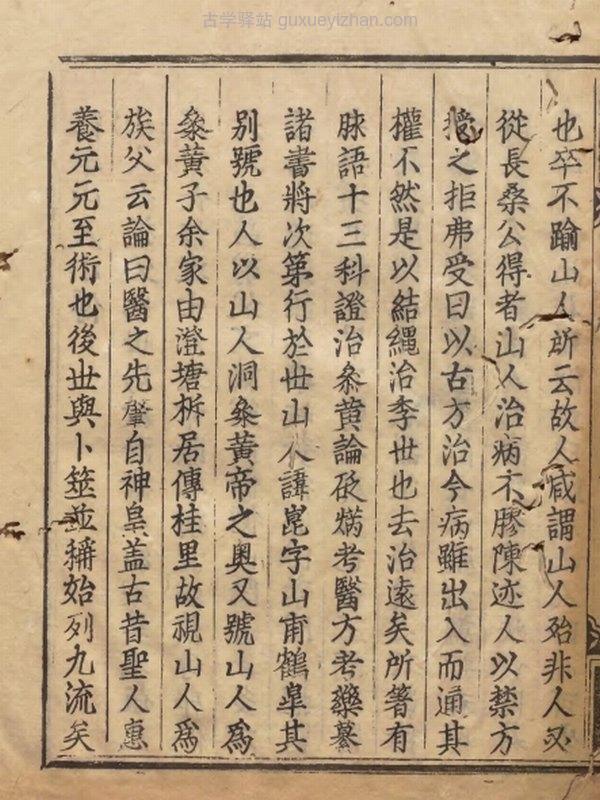 古学驿站 guxueyizhan.com
也卒不踰山人所云故人咸謂山人殆非人必
從長桑公得者山人治病不膠陳迹人以禁方
授之拒弗受曰以古方治今病雖出入而通其
權不然是以結繩治季世也去治遠矣所著有
脉語十三科證治叅黄論砭焫考醫方考藥纂
諸書將次第行於世山人諱崑字山甫鶴臯其
别號也人以山人洞叅黄帝之奥又號山人爲
叅黄子余家由澄塘析居傳桂里故視山人爲
族父云論曰醫之先肇自神皇盖古昔聖人惠
養元元至術也後世與卜筮並稱始列九流矣